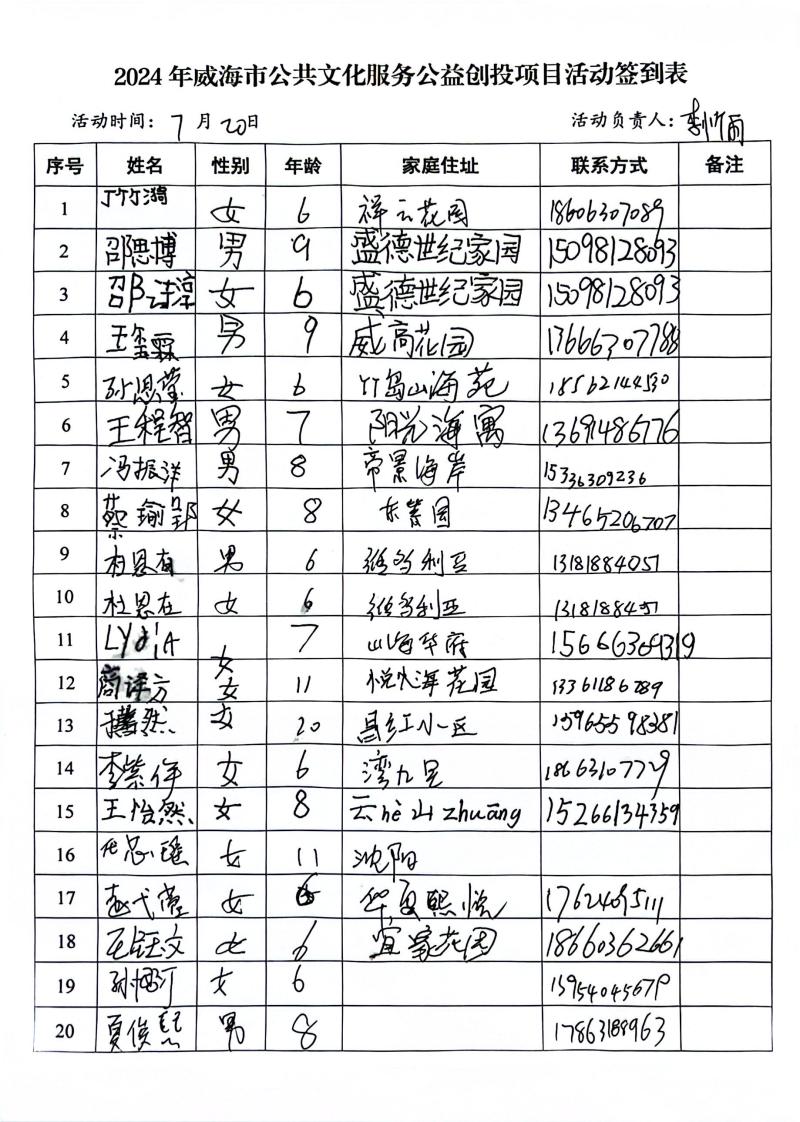 2024年威海市公共文化服务公益创投项目活动签到表
活动时间：7月20日 活动负责人：
序号 姓名 性别 年龄 家庭住址 联系方式 备注
1 女 6 祥云花园 18606307089
2 邵思博 男 9 盛德世纪家园 15098128093
3 邵诗淳 女 6 盛德世纪家园 15098128093
4 王玺霖 男 9 威高花园 13666307788
5 孙恩莹 女 6 竹岛山海苑 18562144530
6 王程智 男 7 阳光海寓 13691486776
7 冯振洋 男 8 帝景海岸 15336309236
8 蔡瑜郢 女 8 东菜园 13465206707
9 杜恩有 男 6 维多利亚 13181884051
10 杜恩在 女 6 维多利亚
11 LYdiA 女 7 山海华府
12 女 11 悦水海花园 13361186789
13 女 20 昌红小区 15965598381
14 李紫伊 女 6 湾九里 18663107729
15 王怡然 女 8 云hè山zhuāng 15266134359
16 女 11 沈阳
17 女 6 华夏熙悦
18 王钰文 女 6 宜家花园 18660362661
19 女 6
20 夏俊熙 男 8 17863189963